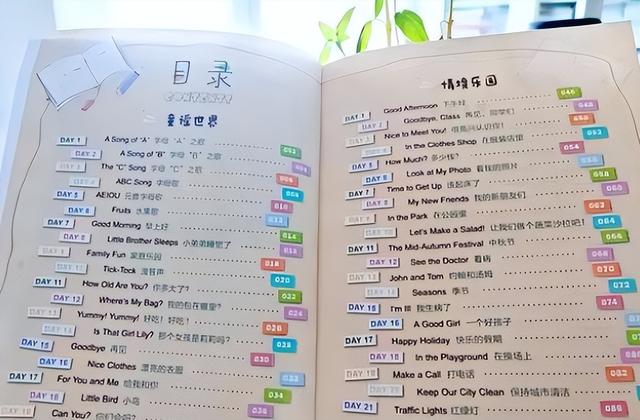 目录
CONTENTS
童谣世界
DAY 1 A Song of "A" 字母 "A" 之歌 002
DAY 2 A Song of "B" 字母 "B" 之歌
The "C" Song 字母 "C" 之歌
ABC Song 字母歌
DAY 5 AEIOU 元音字母歌
DAY 6 Fruits 水果歌
DAY 7 Good Morning 早上好
DAY 8 Little Brother Sleeps 小弟弟睡觉了
Family Fun 家庭乐园 018
Tick-Tock 滴答声 020
DAY 11 How Old Are You? 你多大了? 022
DAY 12 Where's My Bag? 我的包在哪里? 024
Yummy! Yummy! 好吃! 好吃! 026
Is That Girl Lily? 那个女孩是莉莉吗? 028
DAY 15 Goodbye 再见 030
DAY 16 Nice Clothes 漂亮的衣服 032
DAY 17 For You and Me 给我和你 034
DAY 18 Little Bird 小鸟
Can You?
情境乐园
DAY 1 Good Afternoon 下午好 046
Goodbye, Class 再见，同学们 048
Nice to Meet You! 很高兴认识你! 050
In the Clothes Shop 在服装店里 052
DAY 5 How Much? 多少钱? 054
DAY 6 Look at My Photo 看我的照片
DAY 7 Time to Get Up 该起床了
DAY 8 My New Friends 我的新朋友们 060
In the Park 在公园里 062
Let's Make a Salad! 让我们做个蔬菜沙拉吧! 064
DAY 11 The Mid-Autumn Festival 中秋节 066
DAY 12 See the Doctor 看病 068
John and Tom 约翰和汤姆 070
Seasons 季节 072
DAY 15 I'm Ill 我生病了 074
DAY 16 A Good Girl 一个好孩子
DAY 17 Happy Holiday 快乐的假期
DAY 18 In the Playground 在操场上
Make a Call 打电话
Keep Our City Clean 保持城市清洁
DAY 21 Traffic Lights 红绿灯 086